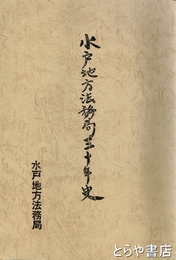 水戸地方法務局三十年史
水戸地方法務局
とらや書店